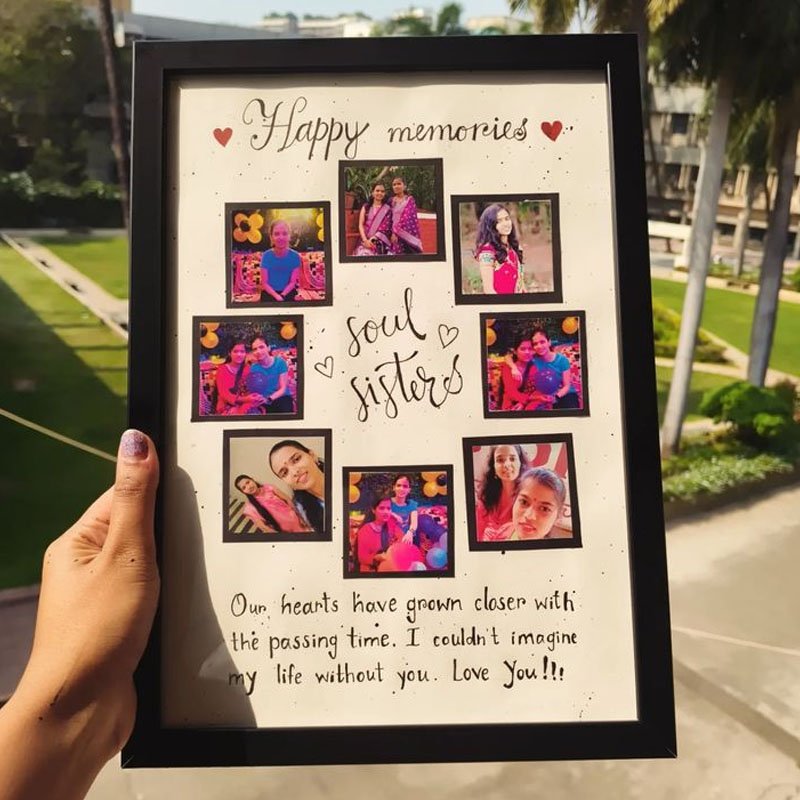 Happy memories
soul
sisters
Our hearts have grown closer with
the passing time. I couldn't imagine
my life without you. Love You!!!